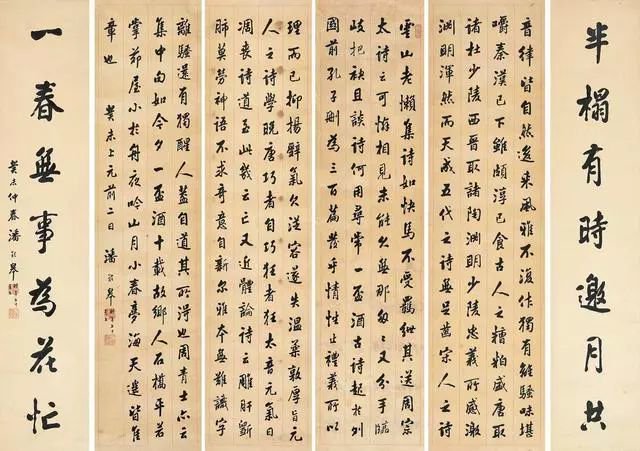 半榻有時邀月共
音律皆自然後來風雅不復作獨有離騷味堪
嚼秦漢已下雖頗淳已食古人之糟粕盛唐取
諸杜少陵西晉取諸陶淵明少陵忠義所感激
淵明渾然而天成五代之詩無足蓄宗人之詩
雲山老懶集詩如快馬不受羈紲其送周宗
太詩之可悔相見未能久無那匆々又分手臨
歧把袂且談詩何用尋常一盃酒古詩起於列
國前孔子刪為三百篇發乎情性止禮義所以
理而已抑揚辭氣久從容遂失溫柔敦厚旨元
人之詩學晚唐巧者自巧狂者狂太音元氣日
凋喪詩道至此幾云亡又近體論詩云雕肝劉
肺莫勞神語不求奇意自新爾雅本無難識字
離騷還有獨醒人蓋自道其所得也周青士亦云
集中句如今夕一盃酒十載故鄉人石橋平若
掌茆屋小於舟夜吟山月小春夢海天遙皆隹
章也 癸未上元前二日 潘齡皋
一春無事為花忙
癸未仲春潘齡皋